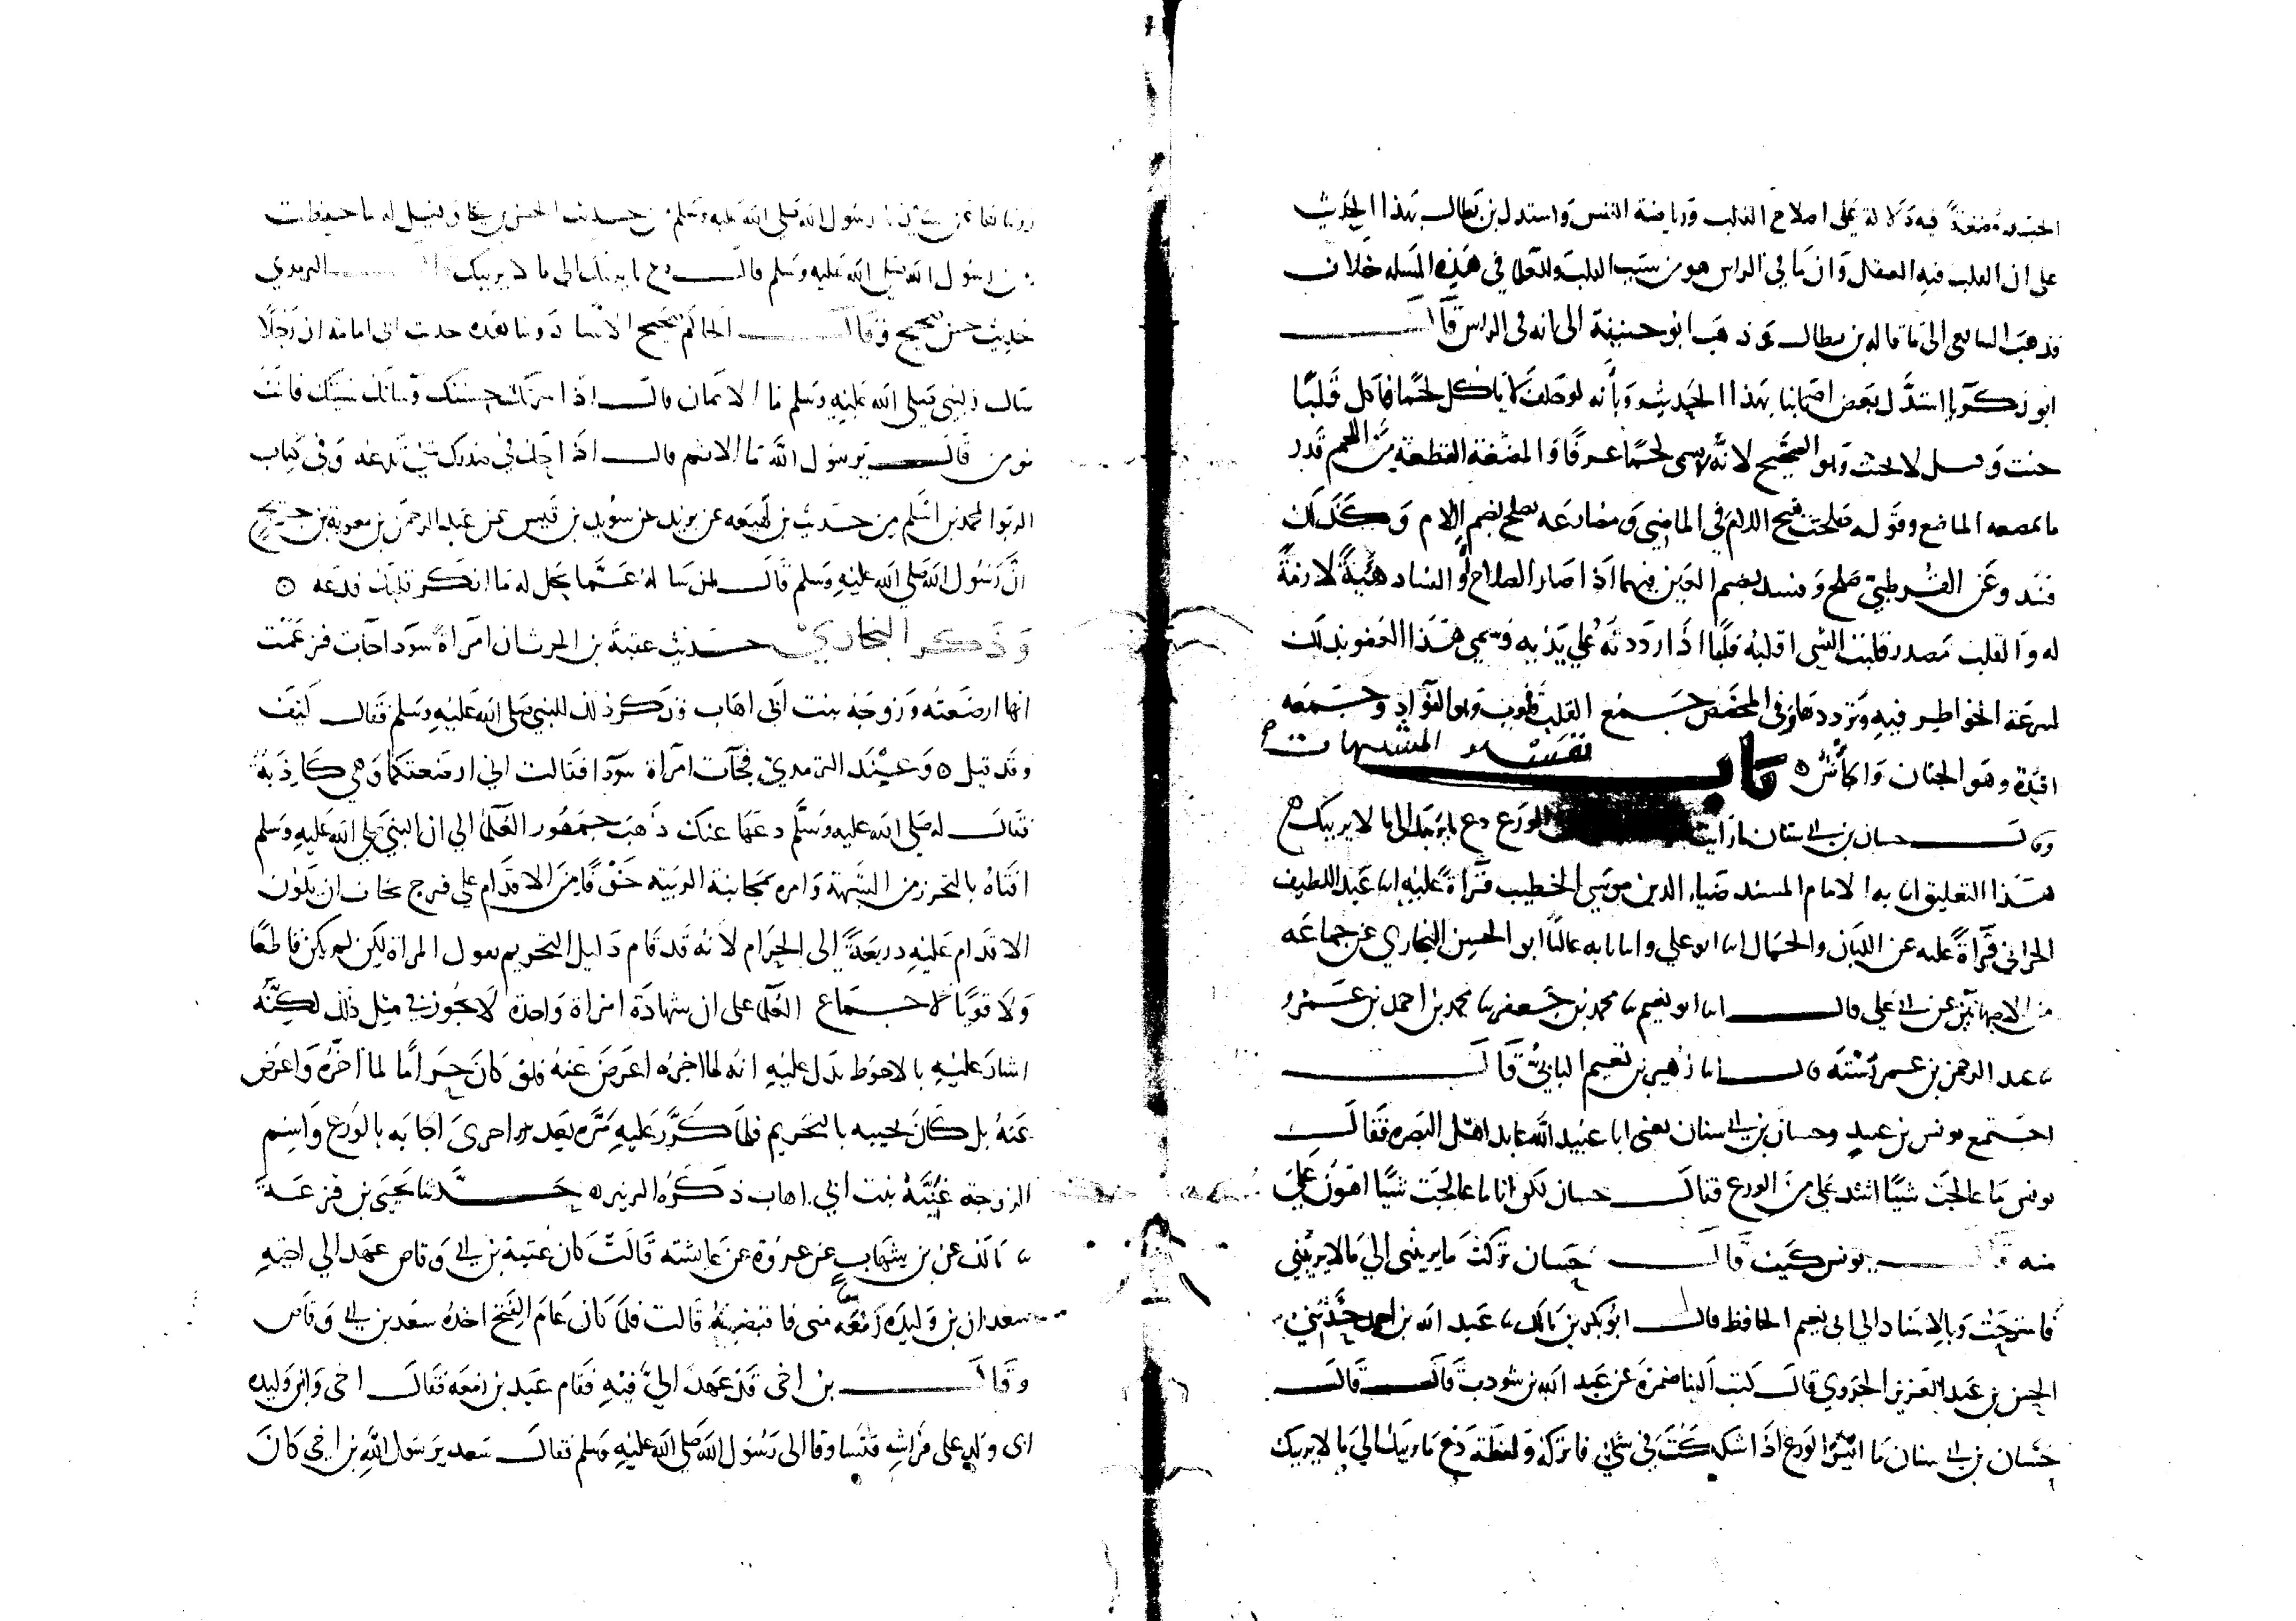 الجسد مضغة فيه دلالة على اصلاح القلب ورياضة النفس واستدل بن بطال بهذا الحديث
على ان العلب فيه العقل وان ما في الراس هو من سبب العلب وللعلما في هذه المسله خلاف
فذهب السافعي الى ما قاله بن بطال وذهب ابو حنيفة الى انه في الراس قال
ابو زكريا استدل بعض اصحابنا بهذا الحديث وبأنه لو حلف لا ياكل لحما فاكل قلبا
حنث وقيل لا يحنث وهو الصحيح لانه لا يسمى لحما عرفا والمضغة القطعة من اللحم قدر
ما يمضغه الماضغ وقوله صلحت بفتح اللام في الماضي ومضارعه يصلح بضم اللام وكذلك
فسد وعن القرطبي صلح وفسد بضم العين فيهما اذا صار الصلاح او الفساد هيئة لازمة
له والقلب مصدر قلبت الشي اقلبه قلبا اذا رددته على يديه وسمي هذا العضو بذلك
لسرعة الخواطر فيه وترددها وفي المخصص جمع القلب قلوب وهو الفواد وجمعه
افئدة وهو الجنان والجاش باب تفسير المشبهات
وقال حسان بن ابي سنان ما رايت الورع دع ما يريبك الى ما لا يريبك
هذا التعليق انا به الامام المسند ضياء الدين موسى الخطيب قراة عليه انا عبد اللطيف
الحراني قراة عليه عن اللبان والجمال انا ابو علي وانا به عاليا ابو الحسين البخاري عن جماعه
من الاصبهانيين عن ابي علي قال انا ابو نعيم نا محمد بن جعفر نا محمد بن احمد بن عمرو
نا عبد الرحمن بن عمر رسته قال انا زهير بن نعيم البابي قال
اجتمع يونس بن عبيد وحسان بن ابي سنان يعنى ابا عبيد الله عابد اهل البصره فقال
يونس ما عالجت شيا اشد علي من الورع فقال حسان لكن انا ما عالجت شيا اهون علي
منه قال يونس كيف قال حسان تركت ما يريبني الي ما لا يريبني
فاسترحت وبالاسناد الي ابي نعيم الحافظ قال ابو بكر بن مالك نا عبد الله بن احمد حدثني
الحسن بن عبد العزيز الجروي قال كتب الينا ضمرة عن عبد الله بن شوذب قال قال
حسان بن ابي سنان ما ايسر الورع اذا شككت في شي فاتركه ولفظة دع ما يريبك الي ما لا يريبك
رسول الله صلى الله عليه وسلم من حديث الحسن بن علي وقيل له ما حفظت
من رسول الله صلى الله عليه وسلم قال دع ما يريبك الى ما لا يريبك الترمدي
حديث حسن صحيح وقال الحاكم صحيح الاسناد وشاهده حدث ابي امامة ان رجلا
سال النبي صلى الله عليه وسلم ما الايمان قال اذا سرتك حسنتك وساتك سيتك فانت
مومن قال يرسول الله ما الاثم قال اذا حك في صدرك شي فدعه وفي كتاب
الربوا لمحمد بن اسلم من حديث بن لهيعه عن يزيد عن سويد بن قيس عن عبد الرحمن بن معوية بن حديج
ان رسول الله صلى الله عليه وسلم قال لمن ساله عما يحل له ما انكر قلبك فدعه
وذكر البخاري حديث عقبة بن الحرث ان امرأة سودا جآت فزعمت
انها ارضعته وزوجه بنت أبي اهاب فذكر ذلك للنبي صلى الله عليه وسلم فقال كيف
وقد قيل وعند الترمدي فجآت امرأة سودا فقالت اني ارضعتكما وهي كاذبة
فقال له صلى الله عليه وسلم دعها عنك ذهب جمهور العلما الي ان النبي صلى الله عليه وسلم
افتاه بالتحرز من الشبهة وامره بمجانبة الريبة خوفا من الاقدام على فرج يخاف ان يكون
الاقدام عليه دريعة الى الحرام لانه قد قام دليل التحريم بقول المراة لكن لم يكن قاطعا
ولا قويا لاجماع العلما على ان شهادة امراة واحدة لا تجوز في مثل ذلك لكنه
اشار عليه بالاحوط يدل عليه انه لما اخبره اعرض عنه فلو كان حراما لما اخره واعرض
عنه بل كان يجيبه بالتحريم فلما كرر عليه مرة بعد اخرى اجابه بالورع واسم
الزوجة غنية بنت ابي اهاب ذكره الزبير حدثنا يحيى بن قزعة
نا مالك عن بن شهاب عن عروة عن عايشة قالت كان عتبة بن ابي وقاص عهد الي اخيه
سعد ان بن وليدة زمعة منى فاقبضه قالت فلما كان عام الفتح اخذه سعد بن ابي وقاص
وقال بن اخى قد عهد الي فيه فقام عبد بن زمعة فقال اخى وابن وليده
ابى ولد على فراشه فتساوقا الى رسول الله صلى الله عليه وسلم فقال سعد يرسول الله بن اخي كان